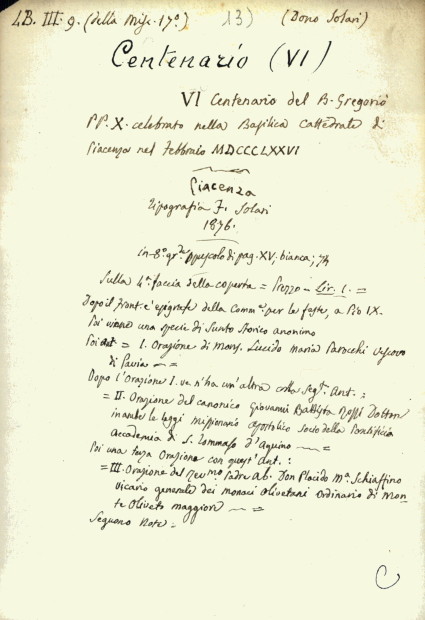 LB. III. 9. (della Misc. 17º.) 13) (Dono Solari)
Centenario (VI)
VI Centenario del B. Gregorio
PP. X. celebrato nella Basilica Cattedrale di
Piacenza nel Febbraio MDCCCLXXVI
Piacenza
Tipografia F. Solari
1876.
in-8º. gr.de opuscolo di pag. XV; bianca; 74
Sulla 4ª. faccia della coperta = Prezzo - Lir. 1. =
Dopo il front. c'è epigrafe della Comm.e per le feste, a Pio IX.
Poi viene una specie di Sunto Storico anonimo
Poi = I. Orazione di Mons. Lucido Maria Parocchi Vescovo
di Pavia — =
Dopo l'Orazione I. ve n'ha un'altra colla seg.te Ant. :
= II. Orazione del canonico Giovanni Battista Rossi Dottore
in ambe le leggi missionario apostolico Socio della Pontificia
Accademia di S. Tommaso d'Aquino — =
Poi una terza Orazione con quest'ant. :
= III. Orazione del Rev.mo Padre Ab. Don Placido M.ª Schiaffino
vicario generale dei monaci Olivetani Ordinario di Mon-
te Oliveto maggiore — =
Seguono Note =
C